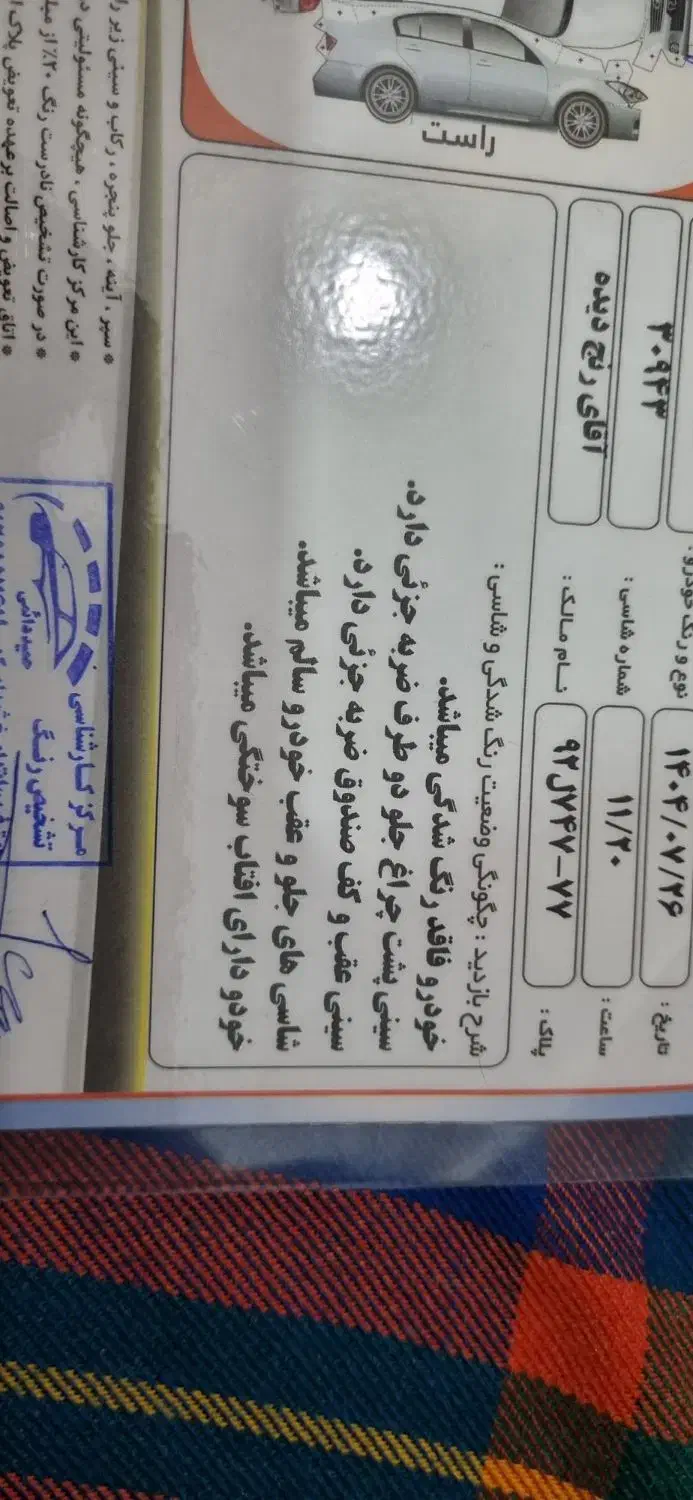 راست
نوع و رنگ خودرو:
تاریخ : ۱۴۰۴/۰۷/۲۶
شماره شاسی : ۳۰۹۴۳
ساعت : ۱۱/۲۰
نام مالک : آقای رنج دیده
پلاک : ۹۲ل۷۴۷-۷۷
شرح بازدید : چگونگی وضعیت رنگ شدگی و شاسی :
خودرو فاقد رنگ شدگی میباشد.
سینی پشت چراغ جلو دو طرف ضربه جزئی دارد.
سینی عقب و کف صندوق ضربه جزئی دارد.
شاسی های جلو و عقب خودرو سالم میباشد.
خودو دارای افتاب سوختگی میباشد.
* سپر ، آینه ، جلو پنجره ، رکاب و سینی زیر
* این مرکز کارشناسی ، هیچگونه مسئولیتی
* در صورت تشخیص نادرست رنگ ۲۰٪ از
* اتاق تعویض و اصالت بر عهده تعویض پلاک
مرکز کارشناسی
تشخیص رنگ